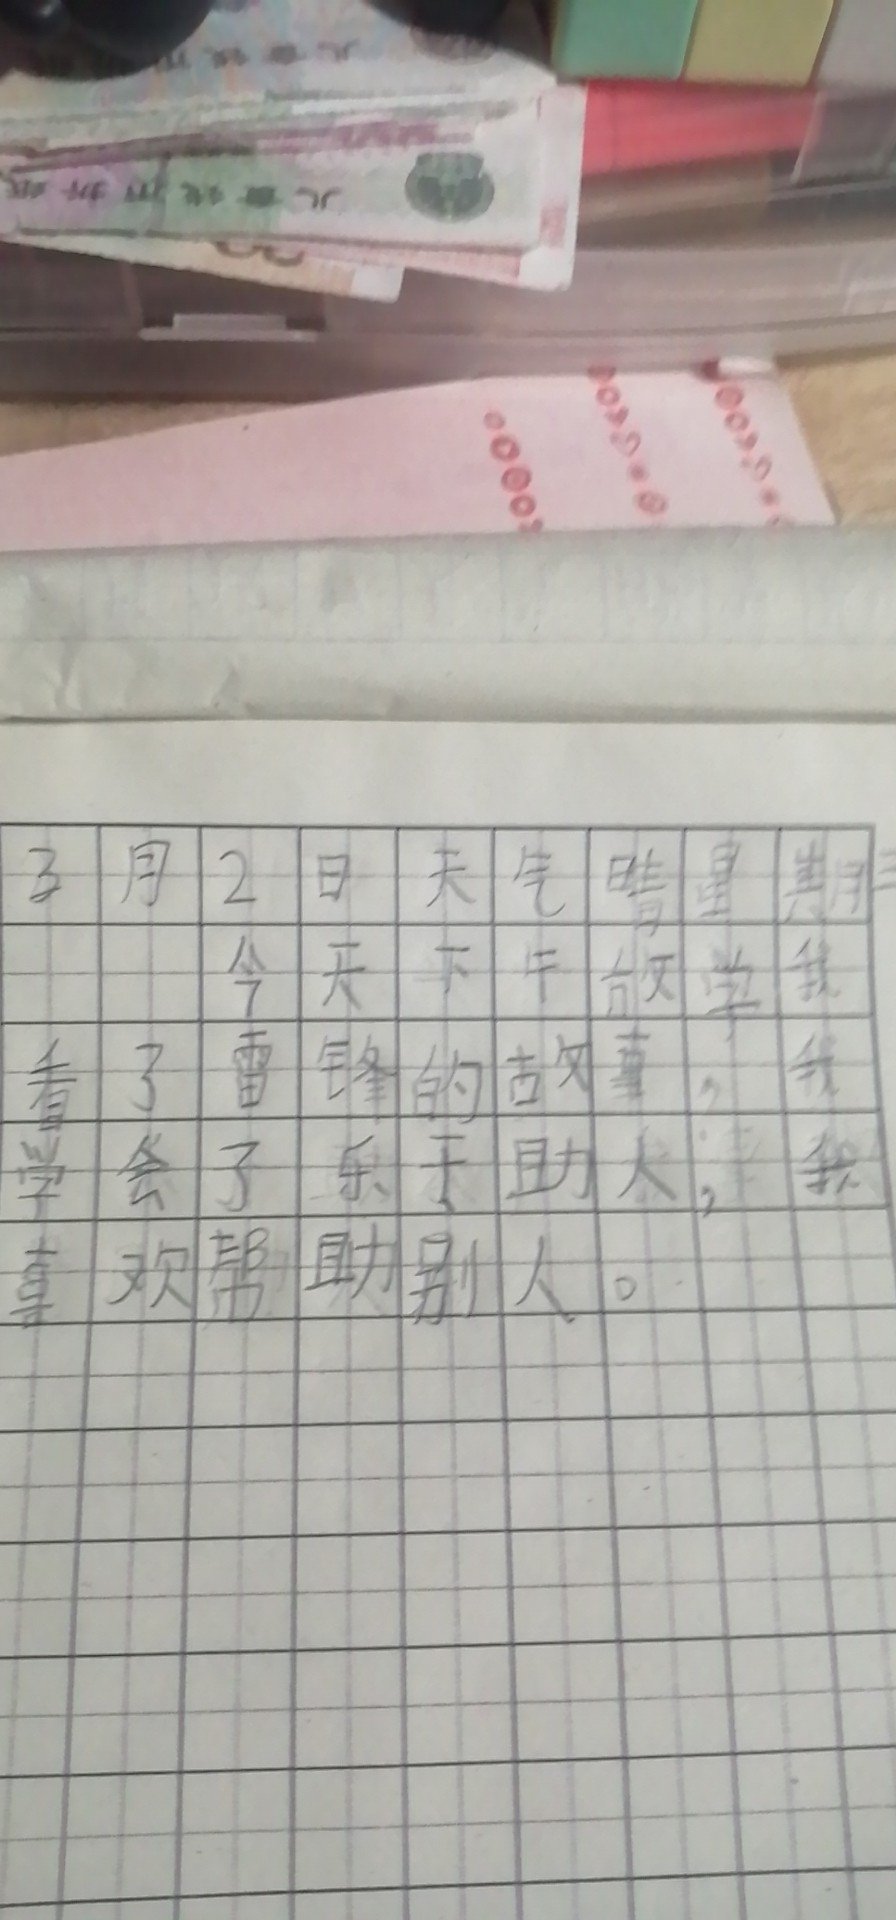 3月2日天气晴星期三
今天下午放学我
看了雷锋的故事，我
学会了乐于助人，我
喜欢帮助别人。